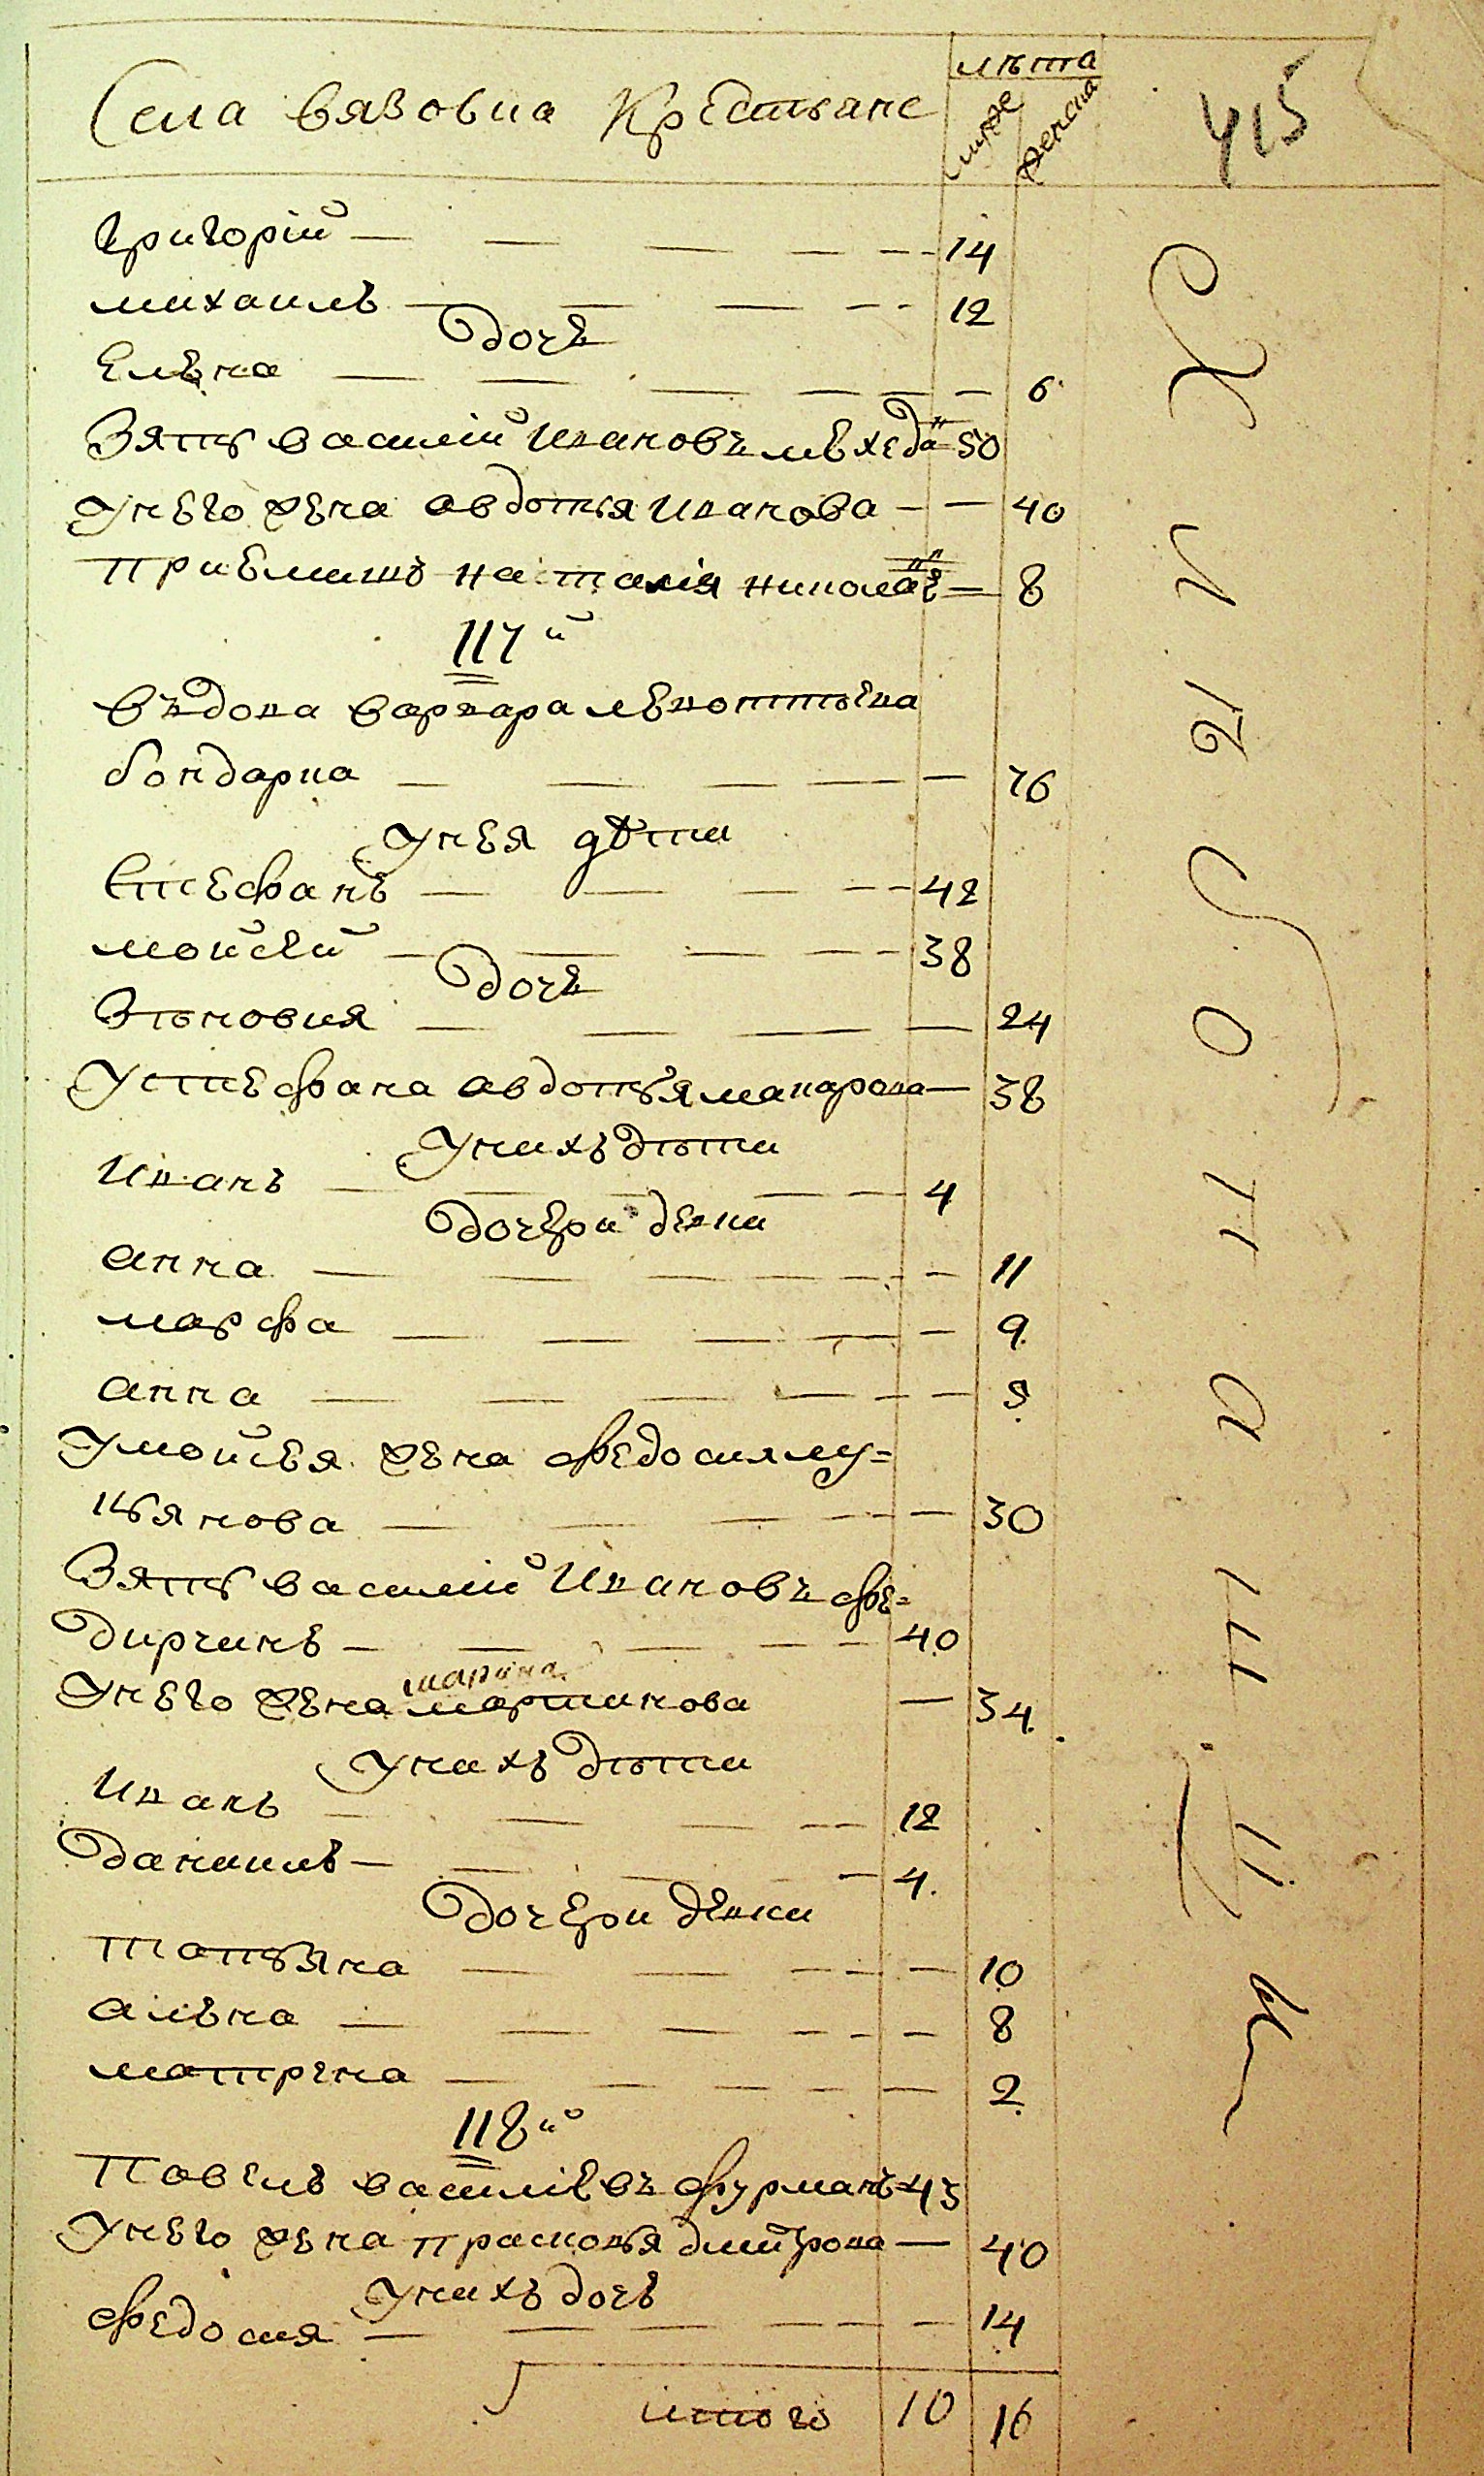 Села вязовка Крестьяне
лѣта
муже
женска
415
Григорій — — — — 14
михаилъ — — — — 12
дочъ
Елѣна — — — — 6
Зять василій Ивановъ мѣхеда 50
Унего жена авдотья Иванова — — 40
Приемишъ наталія николаѣ — 8
117й
въдова варвара левонтьева
бондарка — — — — 76
Унея дѣти
Стефанъ — — — — 42
мойсей — — — — 38
дочъ
Зѣновия — — — — 24
Устефана авдотья макарова — 38
Унихъ дѣти
Иванъ — — — — 4
дочери девки
анна — — — — 11
марфа — — — — 9
анна — — — — 5
Умойсея жена федосия лу=
кьянова — — — — 30
Зять василий Ивановъ фе=
дирчинъ — — — — 40
марина
Унего жена мартинова — 34
Унихъ дѣти
Иванъ — — — — 12
данишъ — — — — 4
дочери девки
татьяна — — — — 10
алѣна — — — — 8
матрена — — — — 2
118й
Павелъ василіевъ фурманъ 43
Унего жена прасковья дмитрова — 40
Унихъ дочъ
федосия — — — — 14
итого 10 16